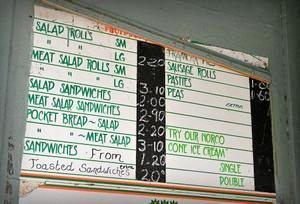 SALAD ROLLS SM
" " LG
MEAT SALAD ROLLS SM 2-20
" " LG
SALAD SANDWICHES 3-10
MEAT SALAD SANDWICHES 2-00
POCKET BREAD ~ SALAD 2-90
" " ~ MEAT SALAD 2-20
SANDWICHES From 3-10
Toasted Sandwiches 1-20
20
SAUSAGE ROLLS
PASTIES
PEAS 1-60
EXTRA
TRY OUR NORCO
CONE ICE CREAM
SINGLE
DOUBLE